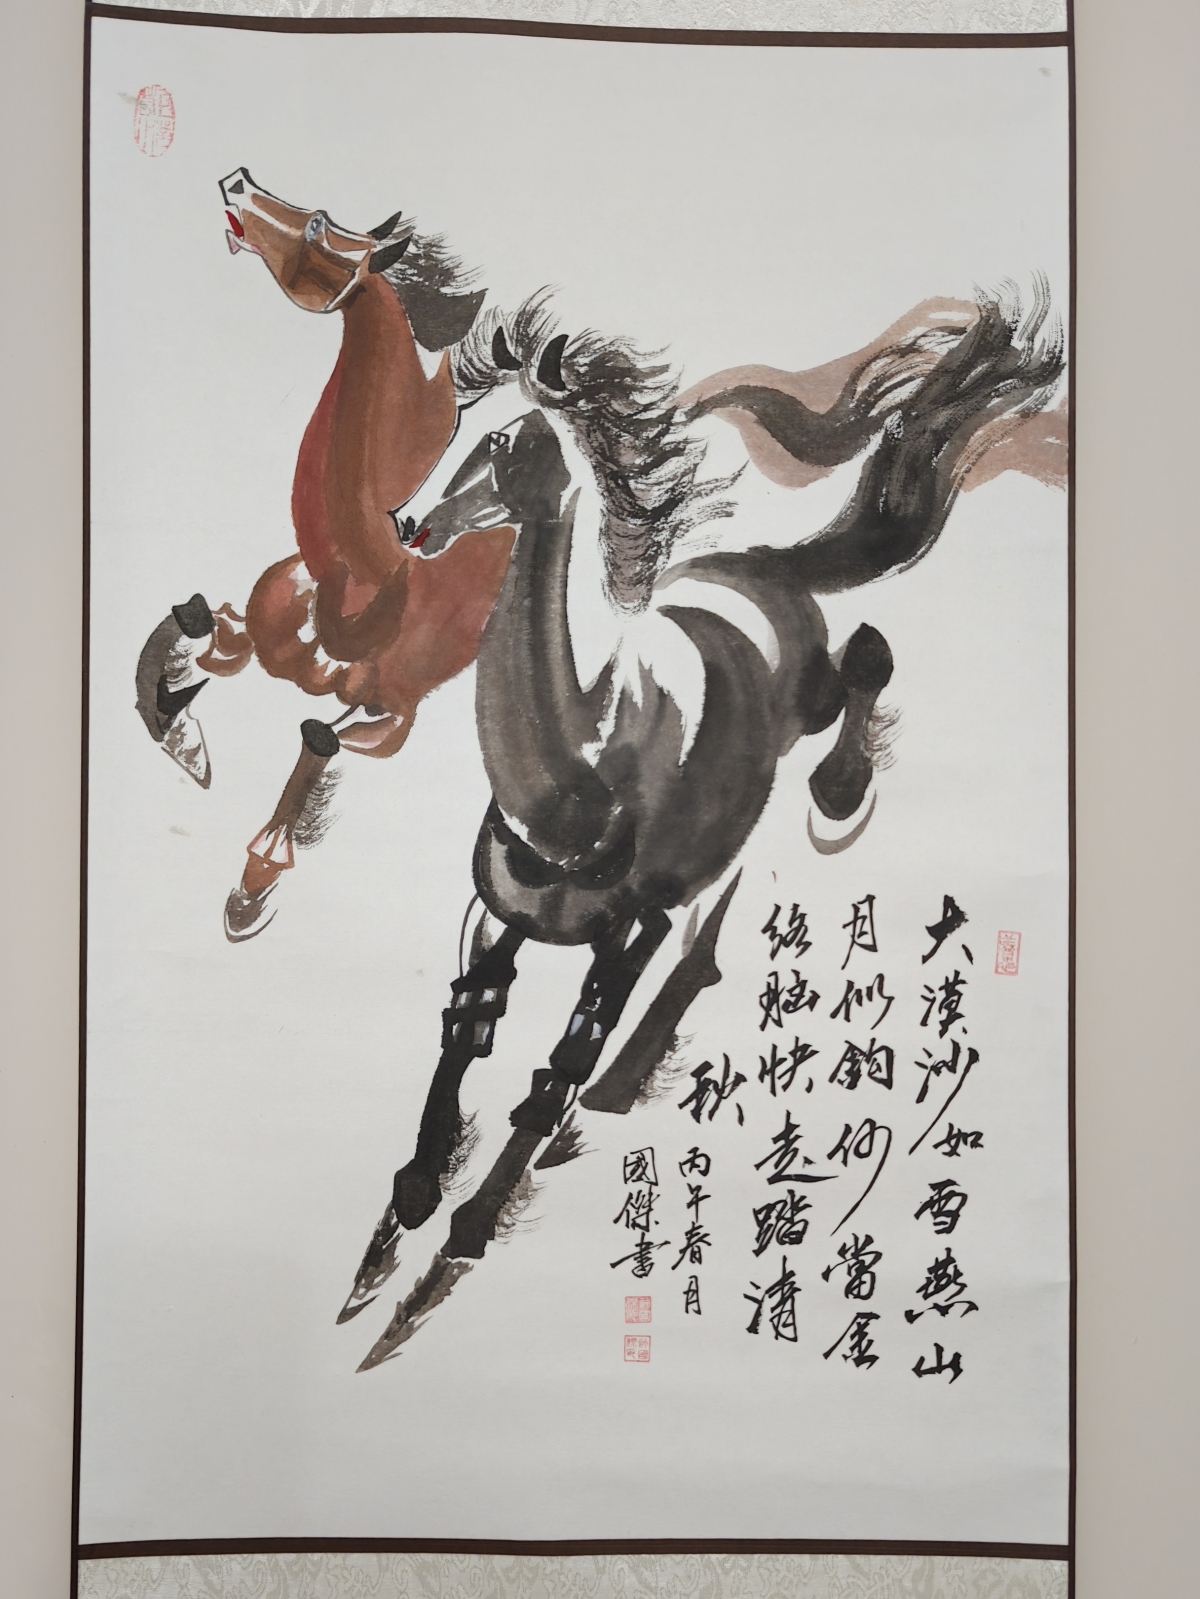 大漠沙如雪燕山
月似鈎何當金
络脑快走踏清
秋
丙午春月
國傑書